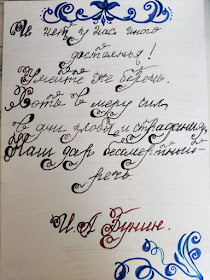 И нет у нас иного
достоянья!
Умейте же беречь.
Хоть в меру сил,
в дни злобы и страдания,
Наш дар бессмертный
речь.
И. А Бунин.